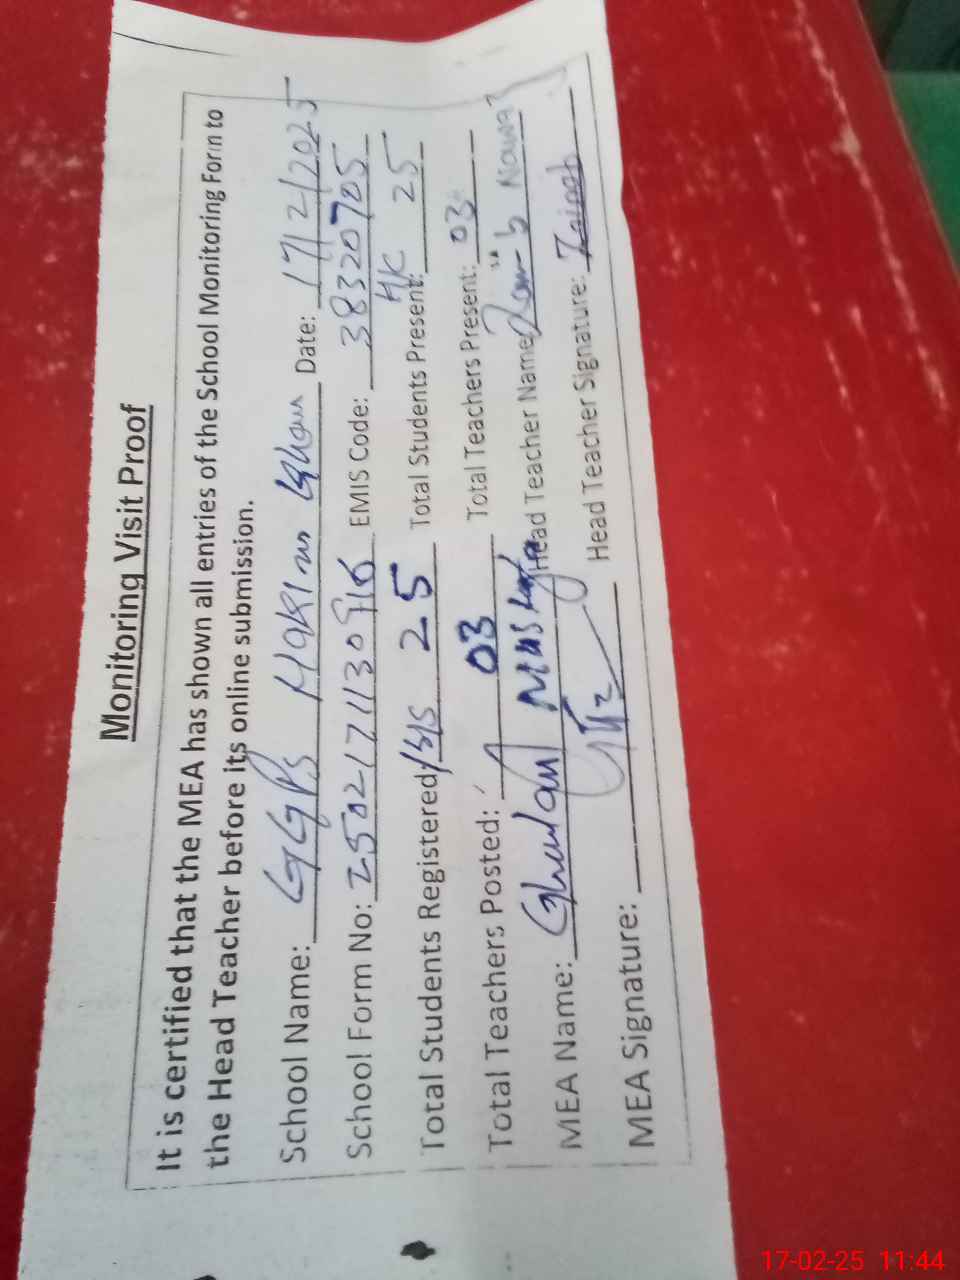 Monitoring Visit Proof
It is certified that the MEA has shown all entries of the School Monitoring Form to
the Head Teacher before its online submission.
School Name: GGPS Hakim Khan Date: 17/2/2025
School Form No: 2502171130916 EMIS Code: 38320705
Total Students Registered: 25 Total Students Present: HK 25
Total Teachers Posted: 03 Total Teachers Present: 03
MEA Name: Ghulam Mustafa Head Teacher Name: Zainab Nawaz
MEA Signature: Head Teacher Signature: Zainab
17-02-25 11:44